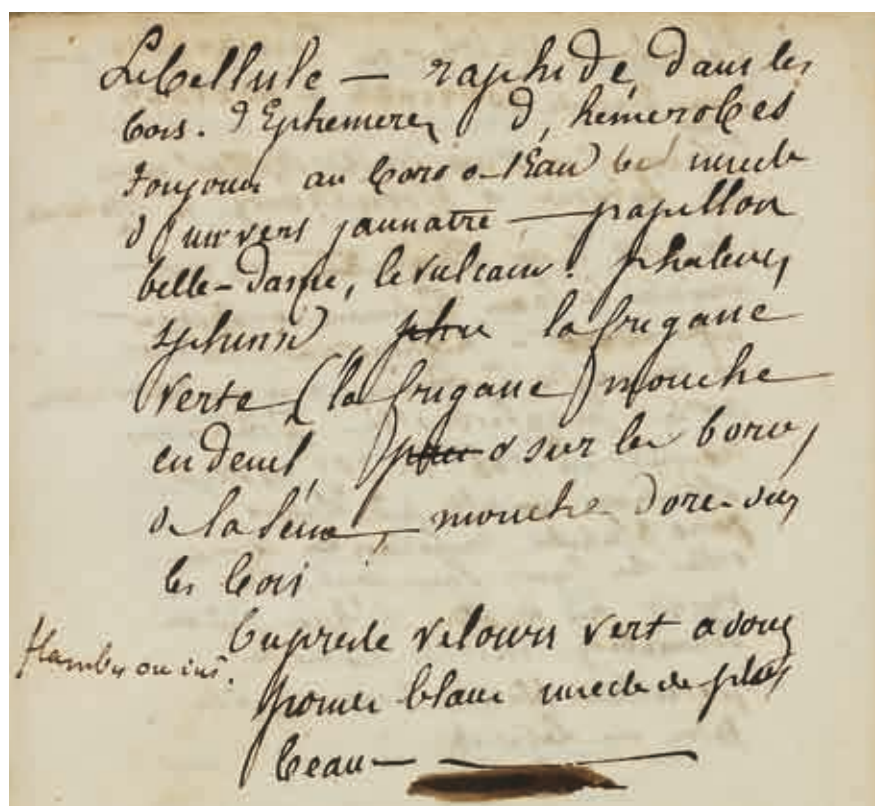 Libellule — raphide, dans les
bois. d'Ephemere, d, hémerobes
toujours au bord de l'Eau bel insecte
d'un vert jaunatre — papillon
belle-dame, le vulcain. phalene,
sphinx la frigane
verte (la frigane) mouche
en deuil sur les bords,
de la Seine, mouche doree sur
les bois
bupreste velours vert a
flambe ou
blanc insecte de plus
beau —